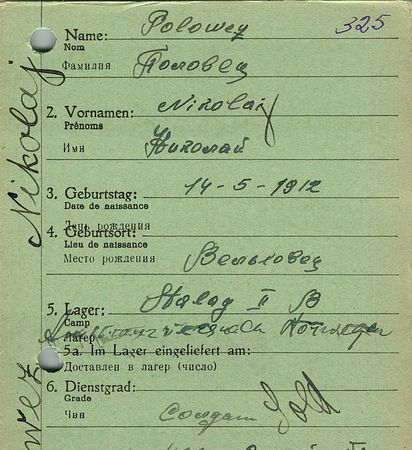 325
Name: Polowez
Nom
Фамилия Половец
2. Vornamen: Nikolaj
Prénoms
Имя Николай
3. Geburtstag: 14-5-1912
Date de naissance
День рождения
4. Geburtsort:
Lieu de naissance
Место рождения
5. Lager: Stalag II B
Camp
Лагерь
5a. Im Lager eingeliefert am:
Доставлен в лагер (число)
6. Dienstgrad:
Grade
Чин Солдат Sold
Nikolaj
wez